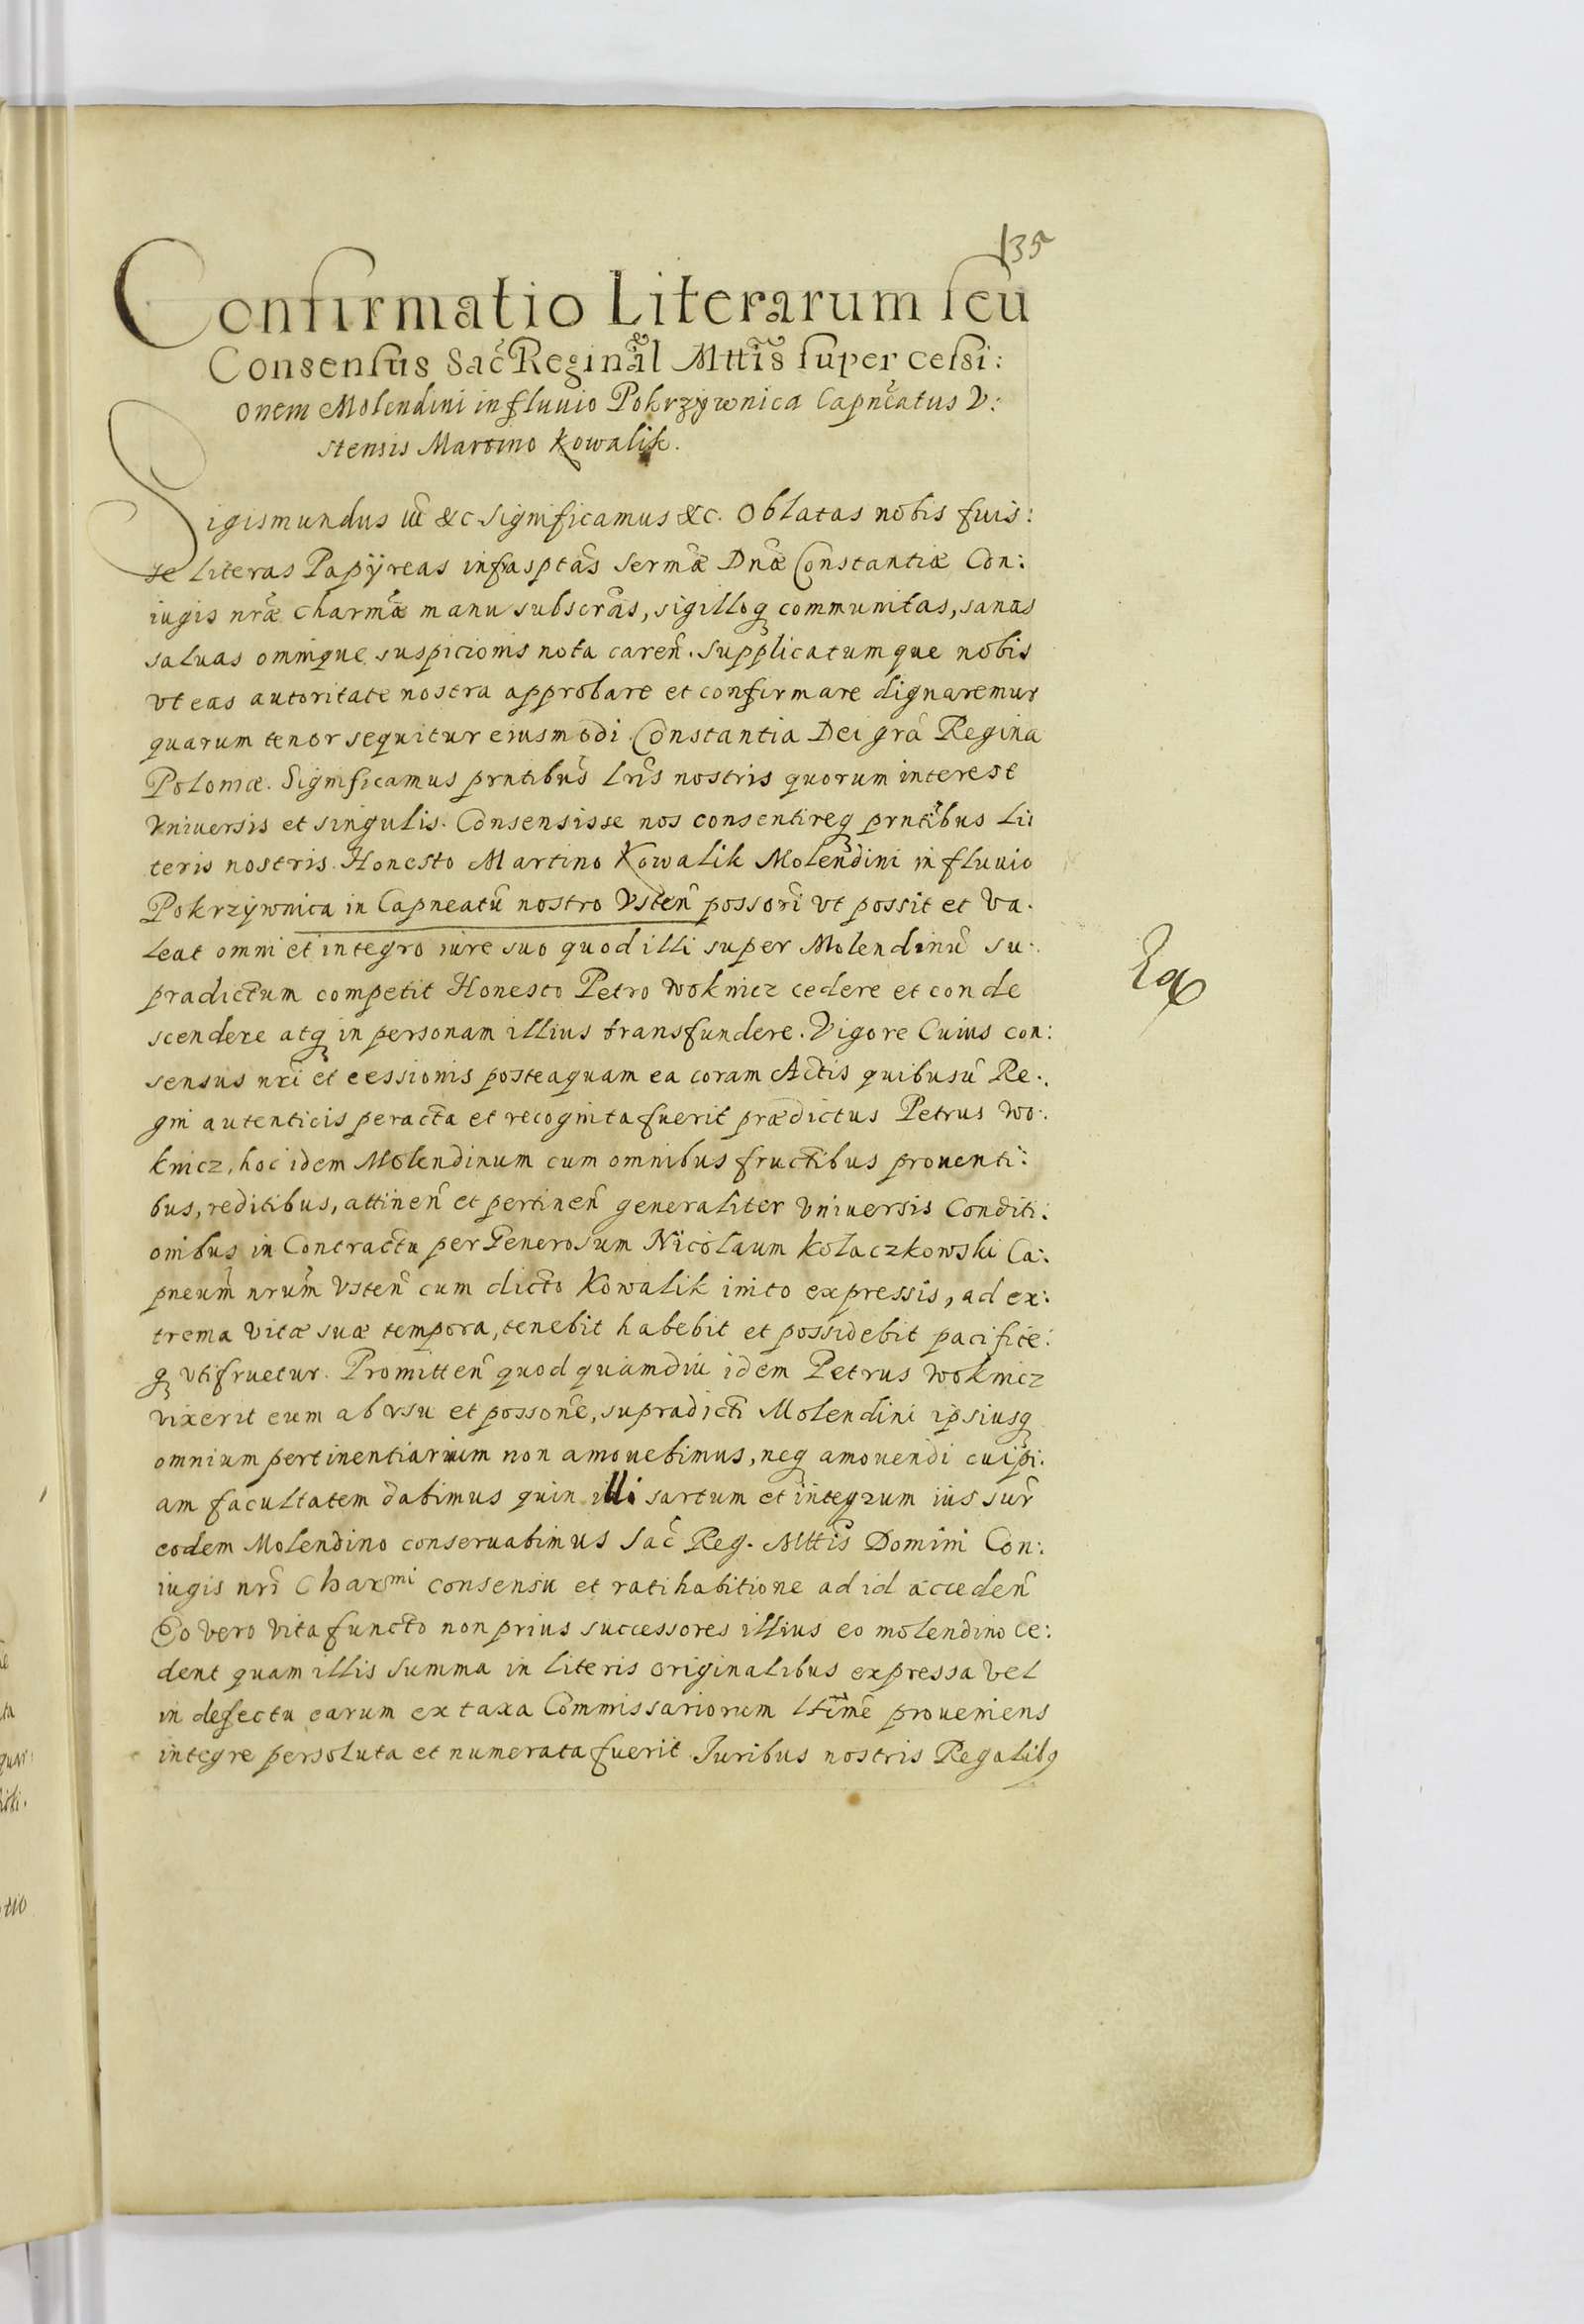 135
Confirmatio Literarum seu
Consensus Sac̃ Reginãl Mttĩs super cessi:
onem Molendini in fluuio Pokrzywnica Capnẽatus V:
stensis Martino Kowalik.
Sigismundus iii &c Significamus &c. Oblatas nobis fuis:
se literas Papÿreas infrasptãs Sermæ̃ Dnæ̃ Constantiæ Con:
iugis nræ̃ charmæ̃ manu subscrãs, sigilloq communitas, sanas
saluas omniq̃ue suspicionis nota careñ. Supplicatumque nobis
vt eas autoritate nostra approbare et confirmare dignaremur
quarum tenor sequitur eiusmodi. Constantia Dei grã Regina
Poloniæ. Significamus prntibũs Lrĩs nostris quorum interest
Vniuersis et singulis. Consensisse nos consentireq prntĩbus Li:
teris nostris. Honesto Martino Kowalik Molendini in fluuio
Pokrzÿwnica in Capneatũ nostro Vsteñ possorĩ vt possit et va:
leat omni et integro iure suo quod illi super Molendinũ su:
pradictum competit Honesto Petro Woknicz cedere et conde
scendere atq in personam illius transfundere. Vigore Cuius con:
sensus nrĩ et cessionis posteaquam ea coram Actis quibusũ Re:
gni autenticis peracta et recognita fuerit prædictus Petrus Wo:
knicz, hoc idem Molendinum cum omnibus fructibus prouenti:
bus, reditibus, attineñ et pertineñ generaliter vniuersis Conditi:
onibus in Contractu per Generosum Nicolaum Kolaczkowski Ca:
pneum̃ nrum̃ Vsteñ cum dicto Kowalik inito expressis, ad ex:
trema vitæ suæ tempora, tenebit habebit et possidebit pacifice:
q vtifruetur. Promitteñ quod quamdiu idem Petrus Woknicz
vixerit eum ab vsu et possonẽ, supradicti Molendini ipsiusq
omnium pertinentiarium non amouebimus, neq amouendi cuipi:
am facultatem dabimus quin illi sartum et integrum ius sur̃
eodem Molendino conseruabimus Sac̃ Reg. Mttĩs Domini Con:
iugis nrĩ Charsmi consensu et ratihabitione ad id accedeñ
Eo vero vita functo non prius successores illius eo molendino ce:
dent quam illis summa in literis originalibus expressa vel
in defectu earum ex taxa Commissariorum ltimẽ proueniens
integre persoluta et numerata fuerit. Juribus nostris Regalibq